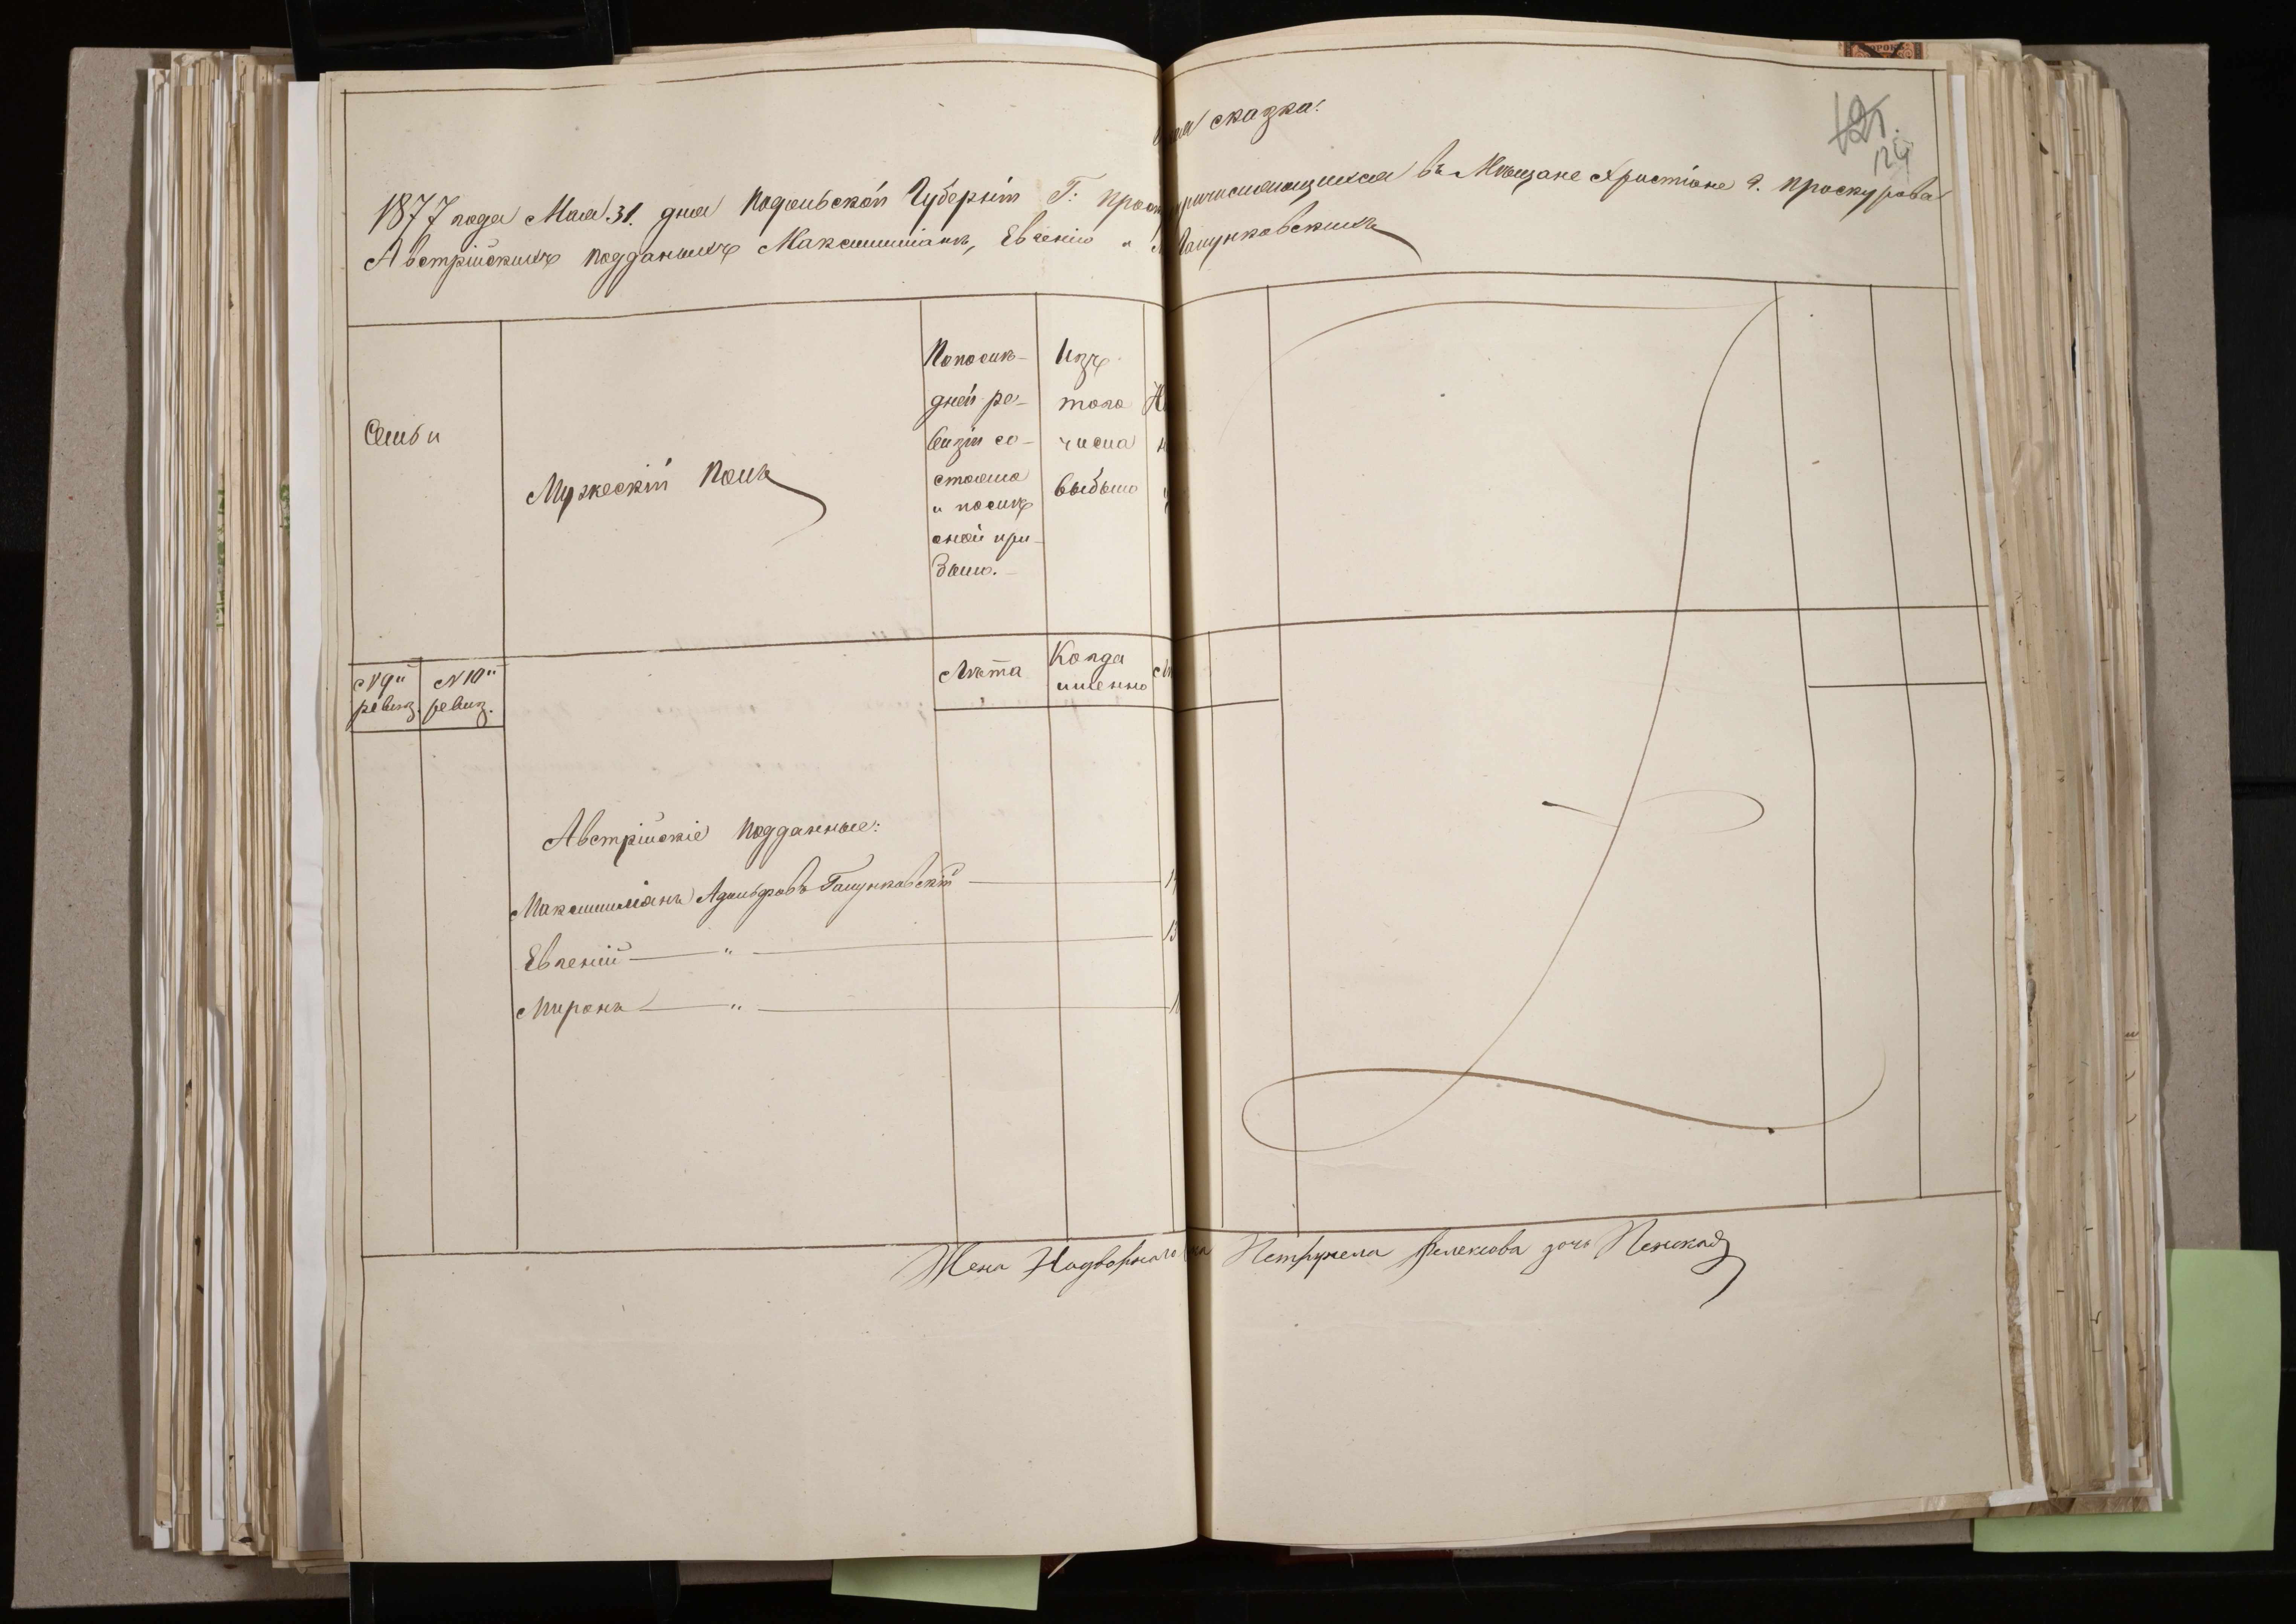 сказка:
125.
124
1877 года Мая 31. дня Подольской Губерніи Г: причисляющихся въ Мѣщане Христіане г. Проскурова
Австрійскихъ подданыхъ Максимиліанъ, Евгенію и
Семьи
Мужескій полъ
Попослѣ-
дней ре-
визіи со-
стояло
и послѣ
оной при-
было.
Изъ
того
числа
выбыло
№ 9й
ревиз.
№ 10й
ревиз.
Лѣта
Когда
именно
Австрійскіе подданные:
Максимиліанъ Адольфовъ Галунковскій
Евгеній — " — 13
Миронъ — " —
Жена Надворнаго Петрунела дочь